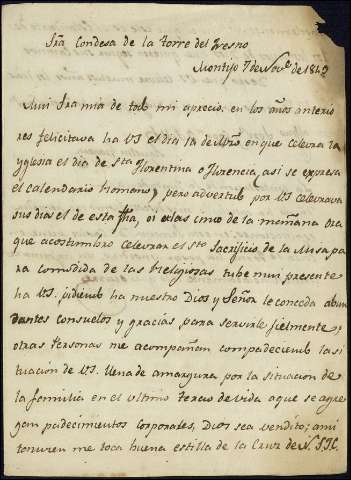 Sra Condesa de la torre del Fresno
Montijo 7 de Nove de 1849
Mui Sra mia de todo mi aprecio: en los años anterio
res felicitava ha VS el dia 1º de Mro en que celevra la
yglesia el dia de Sta Florentina o Florencia, asi se expresa
el calendario Romano, pero advertido por VS celevrava
sus dias el de esta fha, oi a las cinco de la mañana ora
que acostumbro celevrar el sto Sacrificio de la Misa pa
ra comodida de las Religiosas tube mui presente
ha VS. pidiendo ha nuestro Dios y Señor le conceda abun
dantes consuelos y gracias para servirle fielmente,
otras Personas me acompañan compadeciendo la si
tuacion de VS. llena de amargura por la situacion de
la familia en el ultimo tercio de vida a que se agre
gan padecimientos corporales, Dios sea vendito; a mi
me toca buena estilla de la Cruz de N.S.J.C.